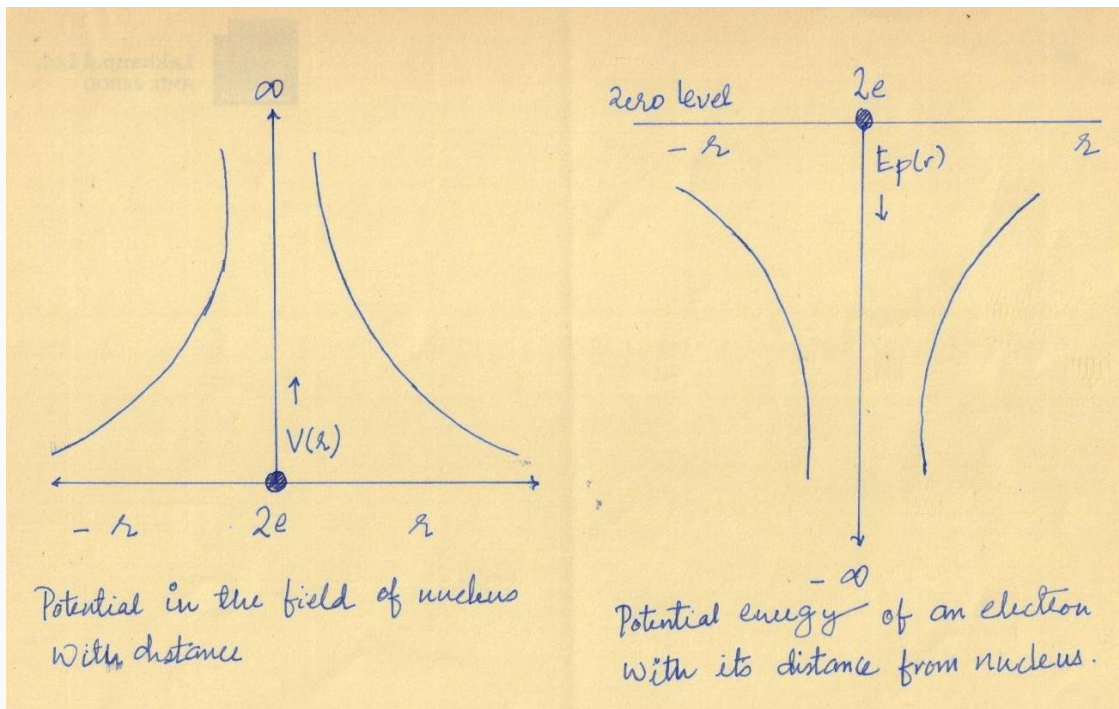 ∞
V(r)
- r Ze r
Potential in the field of nucleus
with distance
zero level Ze
- r r
Ep(r)
- ∞
Potential energy of an electron
with its distance from nucleus.